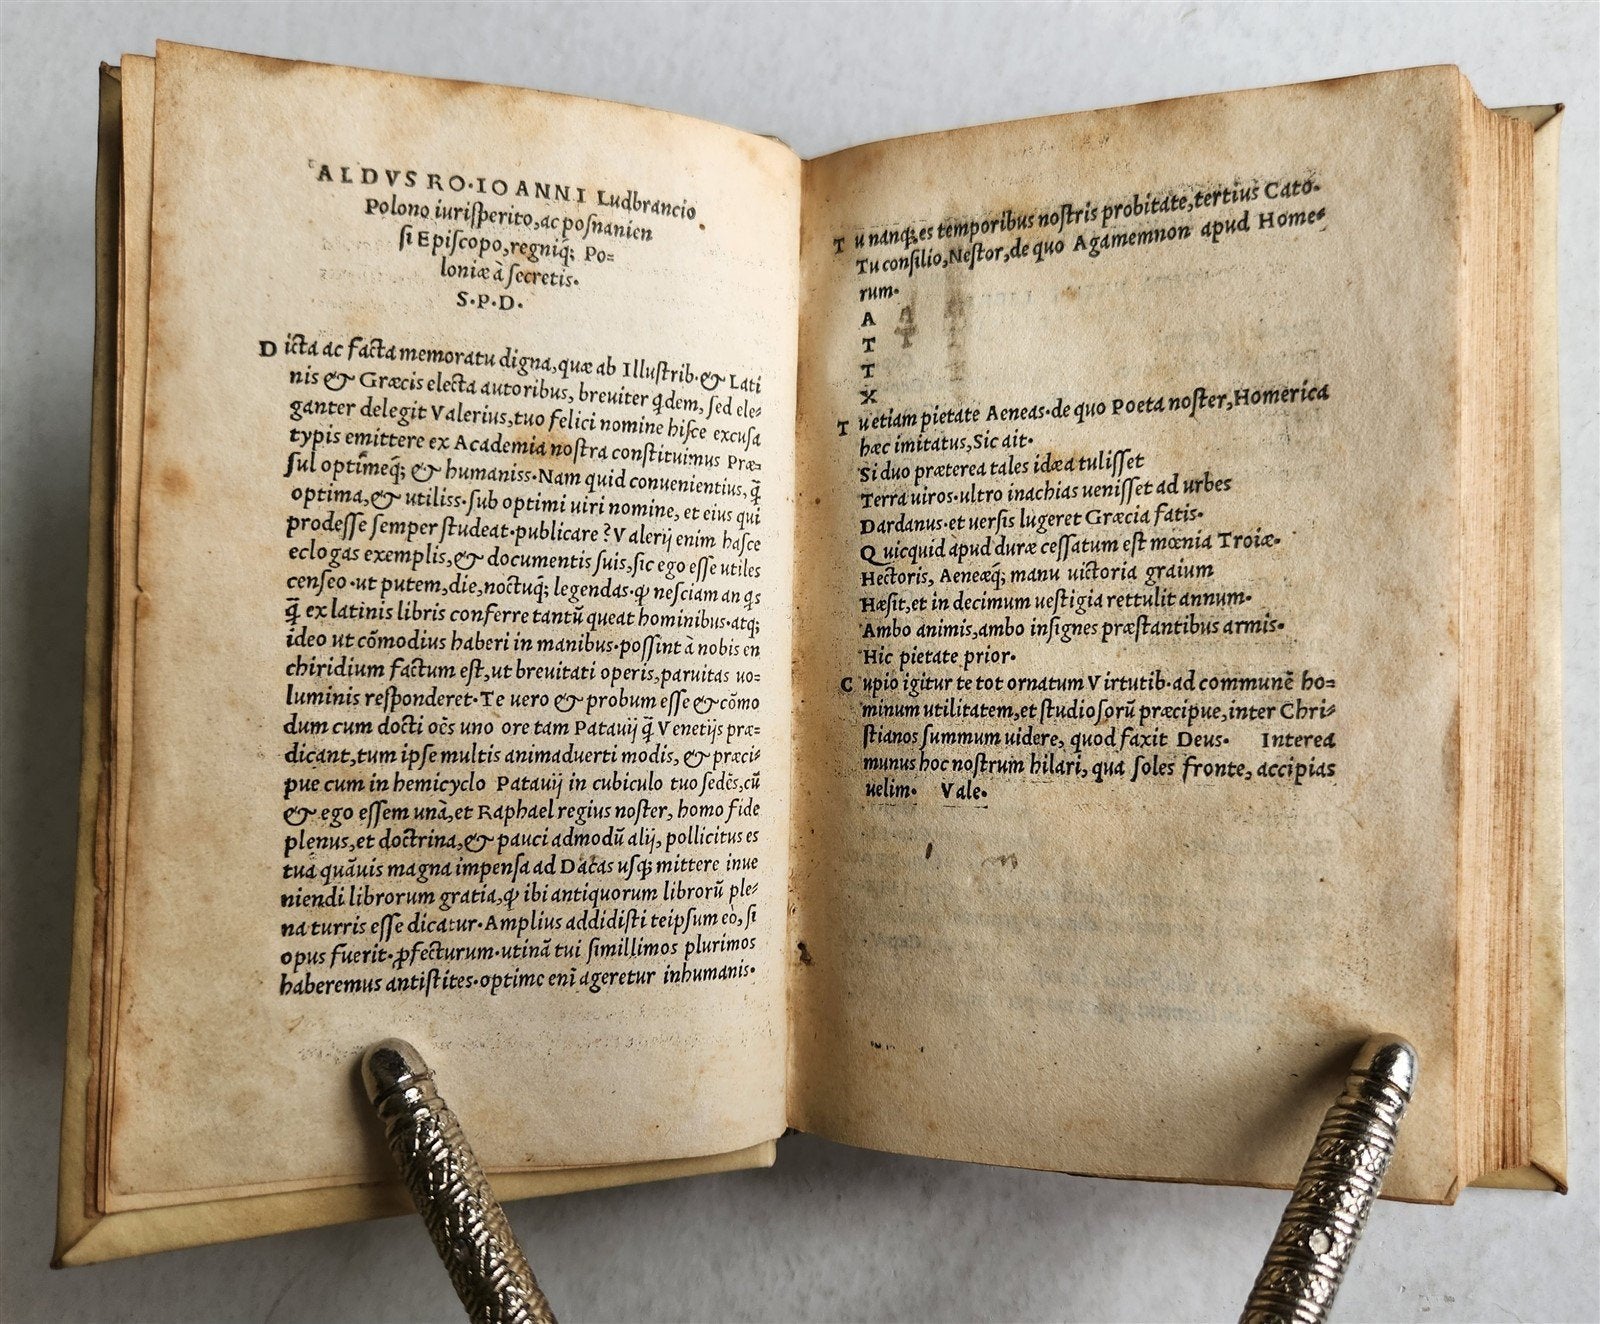 ALDVS RO·IOANNI Ludbrancio
Polono iurisperito, ac posnanien
si Episcopo, regniq; Po=
loniæ à secretis·
S·P·D·
D icta ac facta memoratu digna, quæ ab Illustrib·& Lati
nis & Græcis electa autoribus, breuiter qdem, sed ele=
ganter delegit Valerius, tuo felici nomine hisce excusa
typis emittere ex Academia nostra constituimus Præ=
sul optimeq; & humaniss·Nam quid conuenientius, q̃
optima, & utiliss·sub optimi uiri nomine, et eius qui
prodesse semper studeat·publicare? Valerij enim hasce
eclogas exemplis, & documentis suis, sic ego esse utiles
censeo·ut putem, die, noctuq; legendas·ꝙ nesciam an qs
q̃ ex latinis libris conferre tantũ queat hominibus·atq;
ideo ut cõmodius haberi in manibus·possint à nobis en
chiridium factum est, ut breuitati operis, paruitas uo=
luminis responderet·Te uero & probum esse & cõmo
dum cum docti oẽs uno ore tam Patauij q̃ Venetijs præ=
dicant, tum ipse multis animaduerti modis, & præci=
pue cum in hemicyclo Patauij in cubiculo tuo sedẽs, cũ
& ego essem unà, et Raphael regius noster, homo fide
plenus, et doctrina, & pauci admodũ alij, pollicitus es
tua quãuis magna impensa ad Dacas usq; mittere inue
niendi librorum gratia, ꝙ ibi antiquorum librorũ ple=
na turris esse dicatur·Amplius addidisti teipsum eò, si
opus fuerit·ꝓfecturum·utinã tui simillimos plurimos
haberemus antistites·optime enĩ ageretur inhumanis·
T u nanq; es temporibus nostris probitate, tertius Cato·
Tu consilio, Nestor, de quo Agamemnon apud Home=
rum·
A
T
T
X
T u etiam pietate Aeneas·de quo Poeta noster, Homerica
hæc imitatus, Sic ait·
Si duo præterea tales idæa tulisset
Terra uiros·ultro inachias uenisset ad urbes
Dardanus·et uersis lugeret Græcia fatis·
Quicquid apud duræ cessatum est mœnia Troiæ·
Hectoris, Aeneæq; manu uictoria graium
Hæsit, et in decimum uestigia rettulit annum·
Ambo animis, ambo insignes præstantibus armis·
Hic pietate prior·
C upio igitur te tot ornatum Virtutib·ad communẽ ho=
minum utilitatem, et studiosorũ præcipue, inter Chri=
stianos summum uidere, quod faxit Deus· Interea
munus hoc nostrum hilari, qua soles fronte, accipias
uelim· Vale·